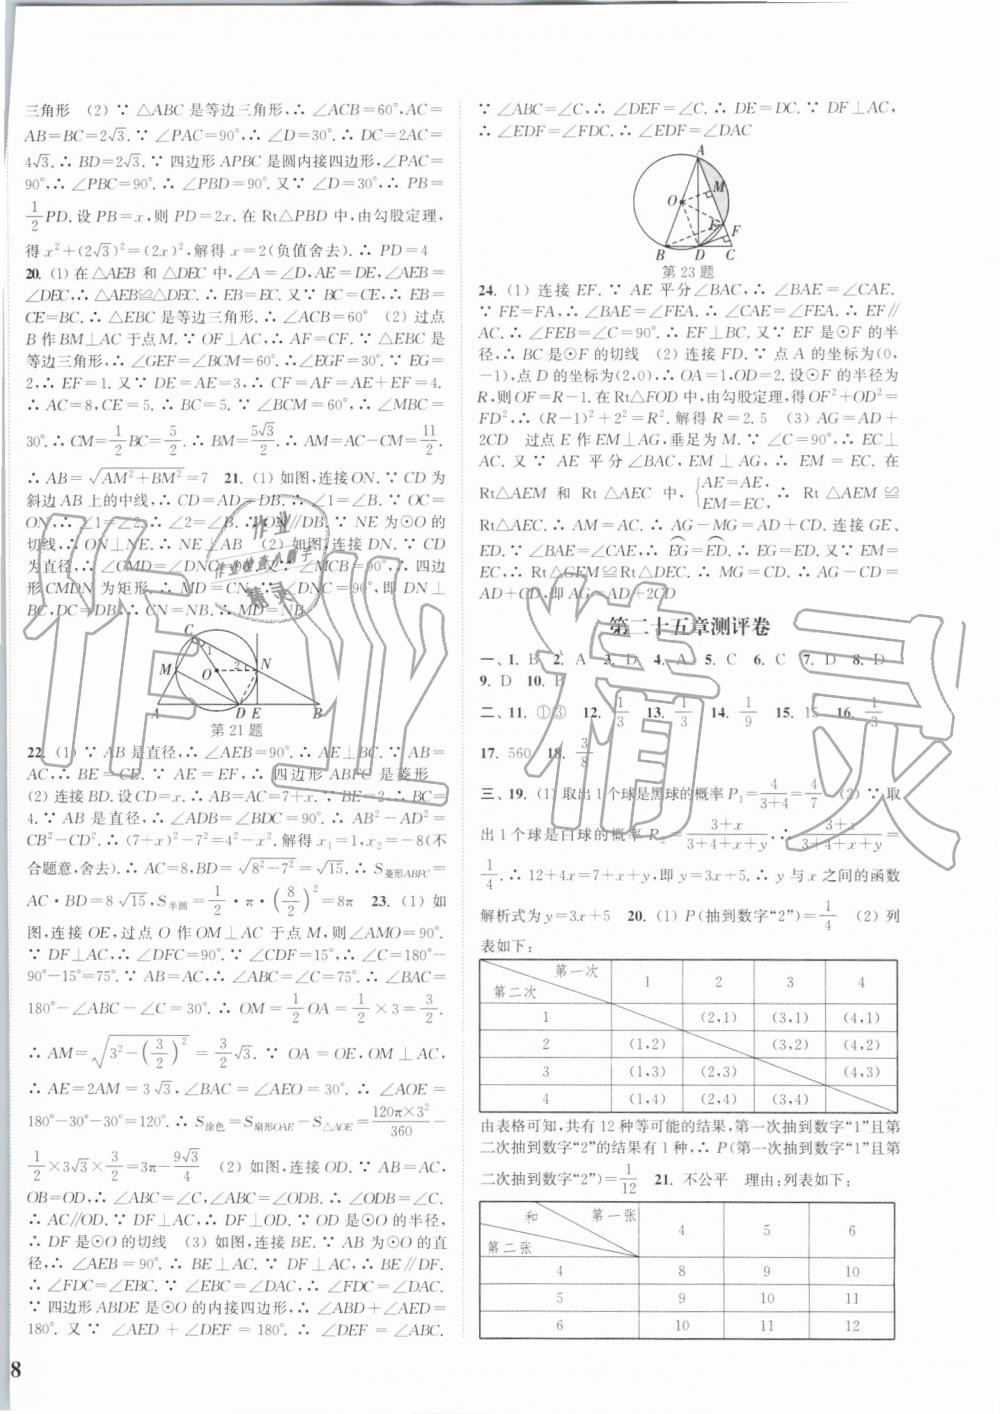 三角形 (2) ∵ △ABC 是等边三角形,∴ ∠ACB=60°,AC=
AB=BC=2√3. ∵ ∠PAC=90°,∴ ∠D=30°. ∴ DC=2AC=
4√3. ∴ BD=2√3. ∵ 四边形 APBC 是圆内接四边形,∠PAC=
90°,∴ ∠PBC=90°. ∴ ∠PBD=90°. 又∵ ∠D=30°,∴ PB=
1/2 PD. 设 PB=x,则 PD=2x. 在 Rt△PBD 中,由勾股定理,
得 x²+(2√3)²=(2x)²,解得 x=2(负值舍去). ∴ PD=4
20. (1) 在△AEB 和△DEC 中,∠A=∠D,AE=DE,∠AEB=
∠DEC,∴ △AEB≌△DEC. ∴ EB=EC. 又∵ BC=CE,∴ EB=
CE=BC. ∴ △EBC 是等边三角形. ∴ ∠ACB=60° (2) 过点
B 作 BM⊥AC 于点 M. ∵ OF⊥AC,∴ AF=CF. ∵ △EBC 是
等边三角形,∴ ∠GEF=∠BCM=60°. ∴ ∠EGF=30°. ∵ EG=
2,∴ EF=1. 又∵ DE=AE=3,∴ CF=AF=AE+EF=4.
∴ AC=8,CE=5. ∴ BC=5. ∵ ∠BCM=60°,∴ ∠MBC=
30°. ∴ CM=1/2 BC=5/2. ∴ BM=5√3/2. ∴ AM=AC-CM=11/2.
∴ AB=√(AM²+BM²)=7 21. (1) 如图,连接 ON. ∵ CD 为
斜边 AB 上的中线,∴ CD=AD=DB. ∴ ∠1=∠B. ∵ OC=
ON,∴ ∠1=∠2. ∴ ∠2=∠B. ∴ ON∥DB. ∵ NE 为⊙O 的
切线,∴ ON⊥NE. ∴ NE⊥AB (2) 如图,连接 DN. ∵ CD
为直径,∴ ∠CMD=∠DNC=90°. ∵ ∠MCB=90°,∴ 四边
形 CMDN 为矩形. ∴ MD=CN. ∵ ∠DNC=90°,即 DN⊥
BC,DC=DB,∴ CN=NB. ∴ MD=NB
C
1
M
O
2
N
A
D
E
B
第 21 题
22. (1) ∵ AB 是直径,∴ ∠AEB=90°. ∴ AE⊥BC. ∵ AB=
AC,∴ BE=CE. ∵ AE=EF,∴ 四边形 ABFC 是菱形
(2) 连接 BD. 设 CD=x. ∴ AB=AC=7+x. ∵ BE=2,∴ BC=
4. ∵ AB 是直径,∴ ∠ADB=∠BDC=90°. ∴ AB²-AD²=
CB²-CD². ∴ (7+x)²-7²=4²-x². 解得 x₁=1,x₂=-8(不
合题意,舍去). ∴ AC=8,BD=√(8²-7²)=√15. ∴ S菱形ABFC=
AC·BD=8√15,S半圆=1/2·π·(8/2)²=8π 23. (1) 如
图,连接 OE,过点 O 作 OM⊥AC 于点 M,则∠AMO=90°.
∵ DF⊥AC,∴ ∠DFC=90°. ∵ ∠CDF=15°,∴ ∠C=180°-
90°-15°=75°. ∵ AB=AC,∴ ∠ABC=∠C=75°. ∴ ∠BAC=
180°-∠ABC-∠C=30°. ∴ OM=1/2 OA=1/2×3=3/2.
∴ AM=√(3²-(3/2)²)=3/2√3. ∵ OA=OE,OM⊥AC,
∴ AE=2AM=3√3,∠BAC=∠AEO=30°. ∴ ∠AOE=
180°-30°-30°=120°. ∴ S涂色=S扇形OAE-S△AOE=120π×3²/360-
1/2×3√3×3/2=3π-9√3/4 (2) 如图,连接 OD. ∵ AB=AC,
OB=OD,∴ ∠ABC=∠C,∠ABC=∠ODB. ∴ ∠ODB=∠C.
∴ AC∥OD. ∵ DF⊥AC,∴ DF⊥OD. ∵ OD 是⊙O 的半径,
∴ DF 是⊙O 的切线 (3) 如图,连接 BE. ∵ AB 为⊙O 的直
径,∴ ∠AEB=90°. ∴ BE⊥AC. ∵ DF⊥AC,∴ BE∥DF.
∴ ∠FDC=∠EBC. ∵ ∠EBC=∠DAC,∴ ∠FDC=∠DAC.
∵ 四边形 ABDE 是⊙O 的内接四边形,∴ ∠ABD+∠AED=
180°. 又∵ ∠AED+∠DEF=180°. ∴ ∠DEF=∠ABC.
8
∵ ∠ABC=∠C,∴ ∠DEF=∠C. ∴ DE=DC. ∵ DF⊥AC,
∴ ∠EDF=∠FDC. ∴ ∠EDF=∠DAC
A
M
O
E
F
B
D
C
第 23 题
24. (1) 连接 EF. ∵ AE 平分∠BAC,∴ ∠BAE=∠CAE.
∵ FE=FA,∴ ∠BAE=∠FEA. ∴ ∠CAE=∠FEA. ∴ EF∥
AC. ∴ ∠FEB=∠C=90°. ∴ EF⊥BC. 又∵ EF 是⊙F 的半
径,∴ BC 是⊙F 的切线 (2) 连接 FD. ∵ 点 A 的坐标为(0,
-1),点 D 的坐标为(2,0),∴ OA=1,OD=2. 设⊙F 的半径为
R,则 OF=R-1. 在 Rt△FOD 中,由勾股定理,得 OF²+OD²=
FD²,∴ (R-1)²+2²=R². 解得 R=2.5 (3) AG=AD+
2CD 过点 E 作 EM⊥AG,垂足为 M. ∵ ∠C=90°,∴ EC⊥
AC. 又∵ AE 平分∠BAC,EM⊥AG,∴ EM=EC. 在
Rt△AEM 和 Rt△AEC 中,{AE=AE, EM=EC, ∴ Rt△AEM≌
Rt△AEC. ∴ AM=AC. ∴ AG-MG=AD+CD. 连接 GE、
ED. ∵ ∠BAE=∠CAE,∴ EG=ED. ∴ EG=ED. 又∵ EM=
EC,∴ Rt△GEM≌Rt△DEC. ∴ MG=CD. ∴ AG-CD=
AD+CD,即 AG=AD+2CD
第二十五章测评卷
一、1. B 2. A 3. D 4. A 5. C 6. C 7. D 8. D
9. D 10. B
二、11. ①③ 12. 1/3 13. 1/3 14. 1/9 15. 15 16. 1/3
17. 560 18. 3/8
三、19. (1) 取出 1 个球是黑球的概率 P₁=4/(3+4)=4/7 (2) ∵ 取
出 1 个球是白球的概率 P₂=(3+x)/(3+4+x+y),∴ (3+x)/(3+4+x+y)=
1/4. ∴ 12+4x=7+x+y,即 y=3x+5. ∴ y 与 x 之间的函数
解析式为 y=3x+5 20. (1) P(抽到数字“2”)=1/4 (2) 列
表如下:
第一次 第二次 1 2 3 4
1 (2,1) (3,1) (4,1)
2 (1,2) (3,2) (4,2)
3 (1,3) (2,3) (4,3)
4 (1,4) (2,4) (3,4)
由表格可知,共有 12 种等可能的结果,第一次抽到数字“1”且第
二次抽到数字“2”的结果有 1 种,∴ P(第一次抽到数字“1”且第
二次抽到数字“2”)=1/12 21. 不公平 理由:列表如下:
和 第一张 第二张 4 5 6
4 8 9 10
5 9 10 11
6 10 11 12
作业
作业检查小帮手
精灵
作业精灵